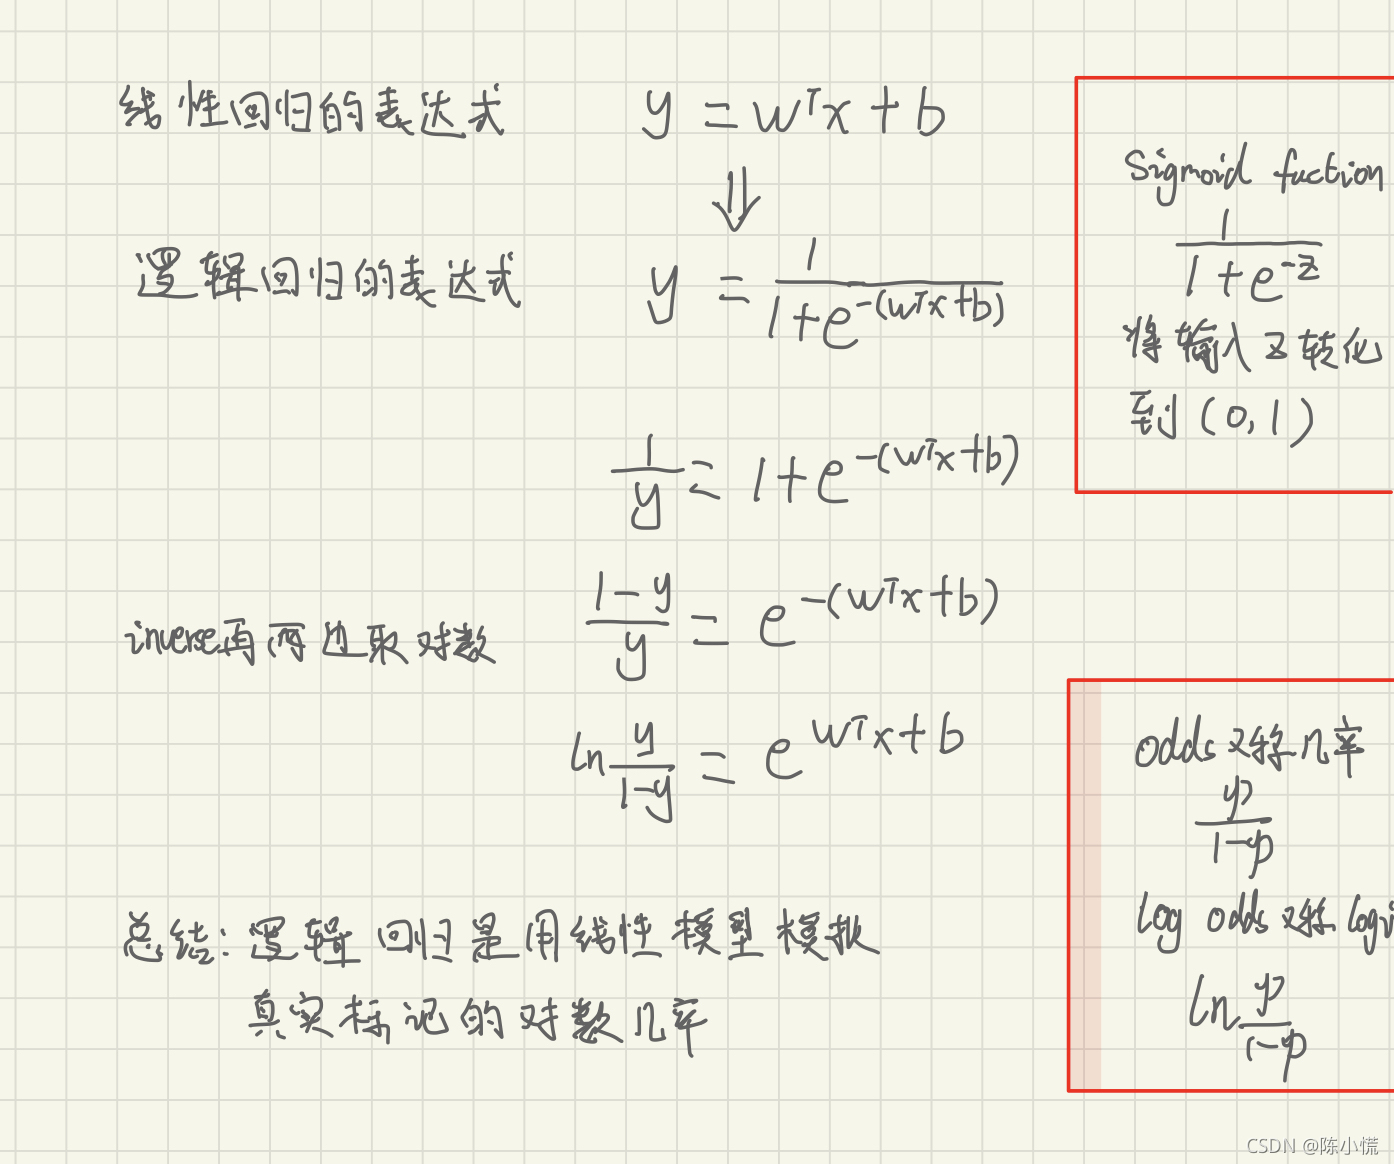 线性回归的表达式 y = wᵀx + b
⇓
逻辑回归的表达式 y = 1/(1+e^(-(wᵀx+b)))
1/y = 1+e^(-(wᵀx+b))
(1-y)/y = e^(-(wᵀx+b))
inverse再两边取对数
ln y/(1-y) = e^(wᵀx+b)
总结：逻辑回归是用线性模型模拟
真实标记的对数几率
Sigmoid fuction
1/(1+e^(-z))
将输入z转化
到(0,1)
odds又称几率
y/(1-y)
log odds又称logi
ln y/(1-y)
CSDN @陈小慌